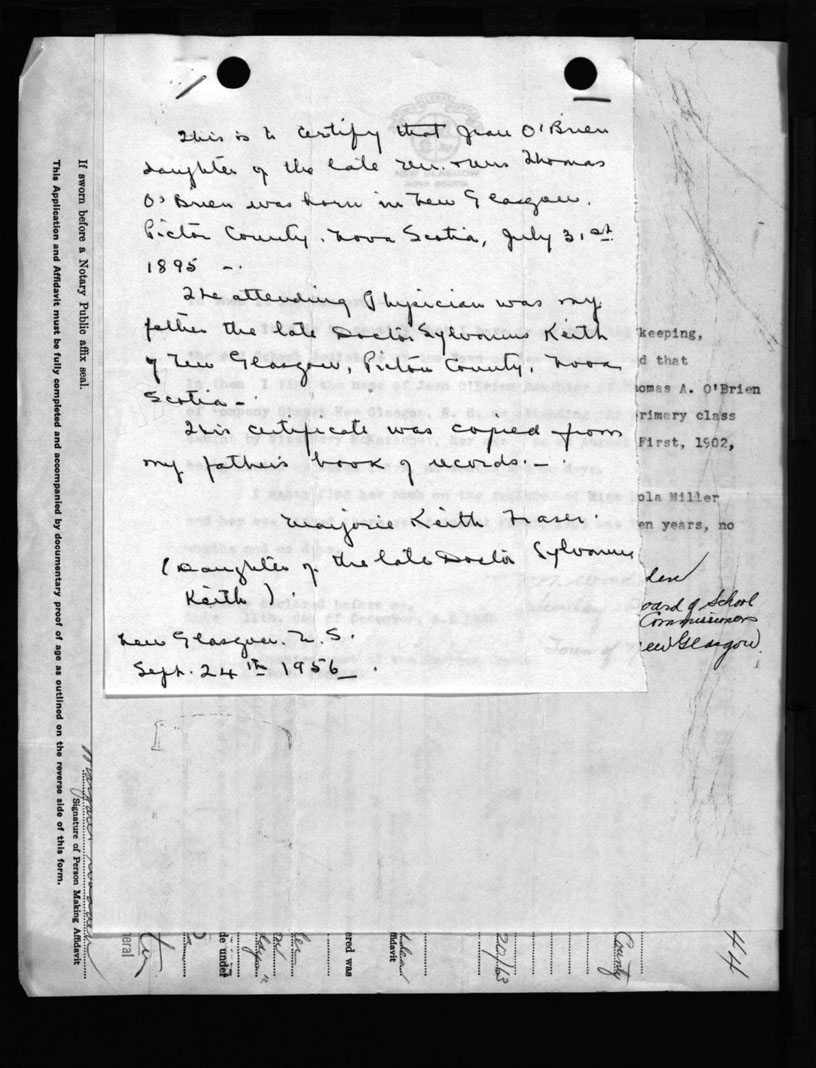 This is to certify that Jean O'Brien
daughter of the late Mr. & Mrs Thomas
O'Brien was born in New Glasgow.
Pictou County. Nova Scotia, July 31st
1895 -.
The attending Physician was my
father the late Doctor Sylvanus Keith
of New Glasgow, Pictou County, Nova
Scotia -.
This certificate was copied from
my father's book of records. -
Marjorie Keith Fraser.
(Daughter of the late Doctor Sylvanus
Keith).
New Glasgow. N.S.
Sept. 24th 1956.
NEW GLASGOW
NOVA SCOTIA
keeping,
d that
omas A. O'Brien
rimary class
First, 1902,
ola Miller
en years, no
den
oard of School
Commissioners
Town of New Glasgow.
If sworn before a Notary Public affix seal.
This Application and Affidavit must be fully completed and accompanied by documentary proof of age as outlined on the reverse side of this form.
Signature of Person Making Affidavit
neral
de under
ered was
ffidavit
20/63
County
44